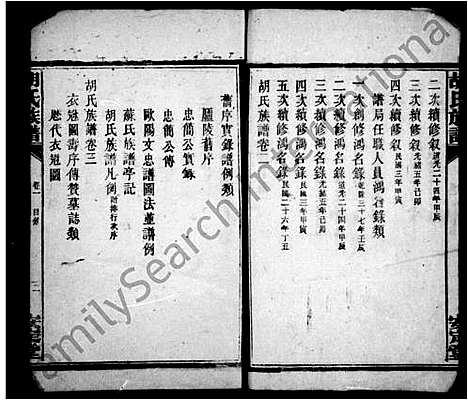 二次續修叙 道光二十四年甲辰
三次續修叙 光緒五年己卯
四次續修叙 民國三年甲寅
譜局任職人員鴻名錄類
一次創修鴻名錄 乾隆三十七年壬辰
二次續修鴻名錄 道光二十四年甲辰
三次續修鴻名錄 光緒五年己卯
四次續修鴻名錄 民國三年甲寅
五次續修鴻名錄 民國二十六年丁丑
胡氏族譜卷二
舊序實錄譜例類
廬陵舊序
忠簡公實錄
忠簡公傳
歐陽文忠譜圖法並譜例
蘇氏族譜亭記
胡氏族譜凡例 附排行次序
胡氏族譜卷三
衣冠圖壽序傳贊墓誌類
歷代衣冠圖
胡氏族譜
卷一
目錄
胡氏族譜
FamilySearch International